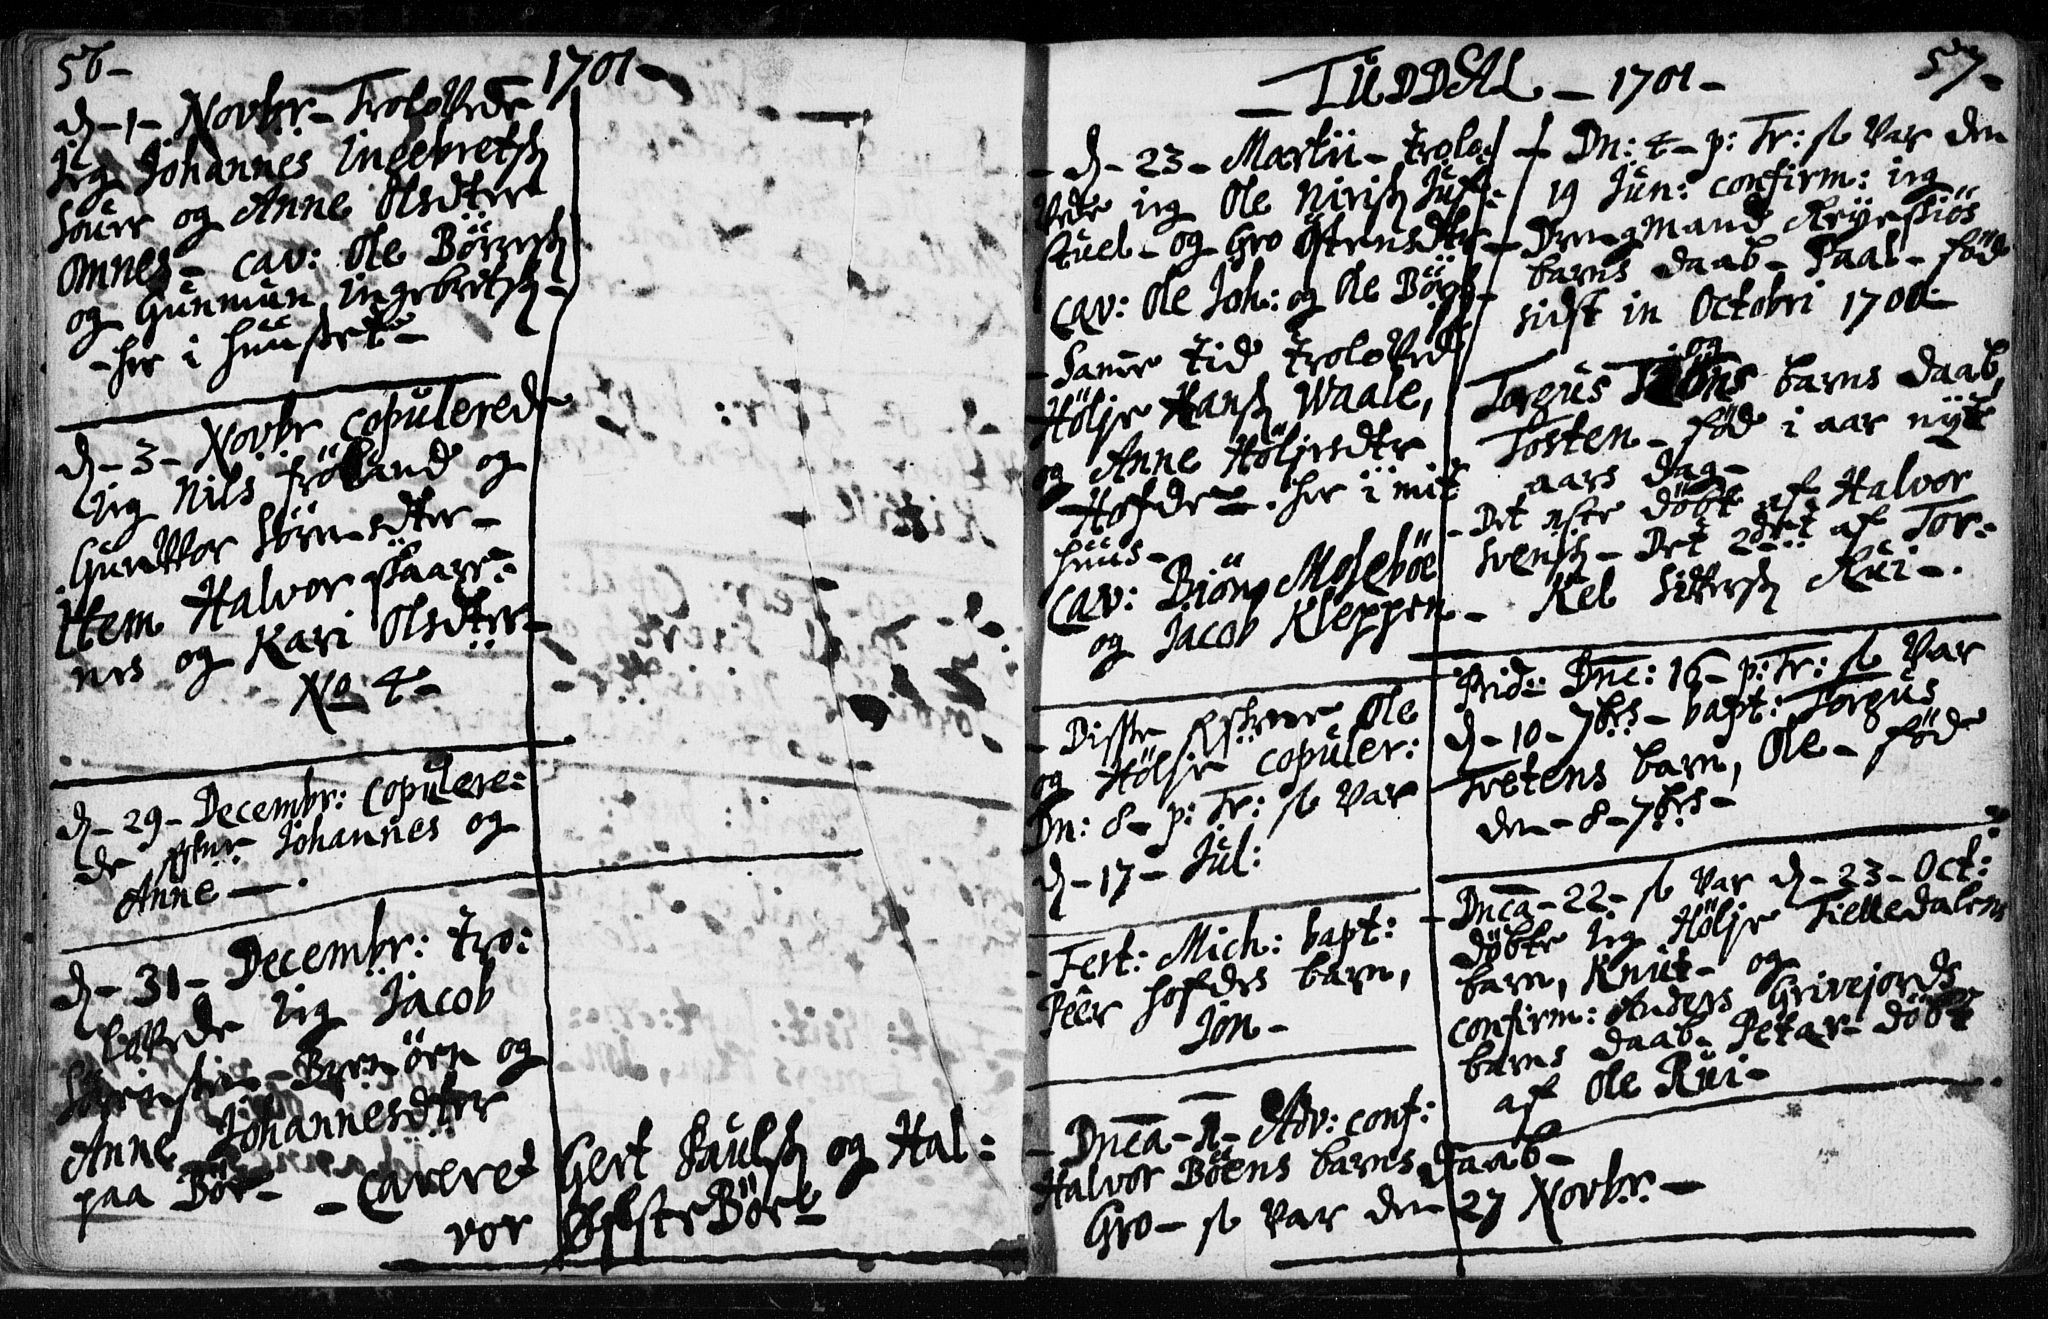 56 -
- 1701 -
d - 1 - Novbr - Trolovede
jeg Johannes Ingebretsß
og Anne Olsdter
Omnes - cav: Ole Börresß
og Gunmun Ingebretsß -
- her i huuset -
d - 3 - Novbr copulerede
jeg Nils Fröland og
Gunvor Sörensdter -
Item Halvor Skaare:
nes og Kari Olsdter -
No 4 -
d - 29 - Decembr: copulere:
de Johannes og
Anne - .
d - 31 - Decembr: tro:
lovede jeg Jacob
og
Anne Johannesdter
paa Bör - - caveret Gert Paulsß og Hal:
vor Börte
- TUDDAL - 1701 -
57 -
- d - 23 - Martii - trolo:
vede jeg Ole Nirisß
og Gro Östensdter -
cav: Ole Joh: og Ole Börgß -
- Samme tid trolovede
Höljr Hansß Waale,
og Anne Höljesdter
Hofde - her i mit
huus -
cav: Biörn Moseböe
og Jacob Kleppen -
- Disse Ole
og Höljr copuler:
Dn: 8 - p: Tr: so var
d - 17 - Jul:
- Fest: Mich: bapt:
Peer Hofdes barn,
Jon -
- Dnca - 1 - Adv: conf:
Halvor Böens barns daab -
Gro - so var den 27 Novbr: -
- Dn: 4 - p: Tr: so var den
19 Jun: confirm: jeg
barns daab - Paal - föd
sidst in Octobri 1700 -
Torgus og barns daab,
Tosten - föd i aar nyt
aars dag -
- Det döbt af Halvor
Svensß - Det 2det af Tor:
Kel Rui - .
- Prid: Dnc: 16 - p: Tr: so var
d - 10 - 7brs - bapt: Torgus
Tvetens barn, Ole - föd
den - 8 - 7brs -
- Dnca - 22 - so var d - 23 - Oct:
döbte jeg Höljr Tielledalens
barn, Knut - og
confirm: Anders Grivejords
barns daab - Petar - döbt
af Ole Rui -